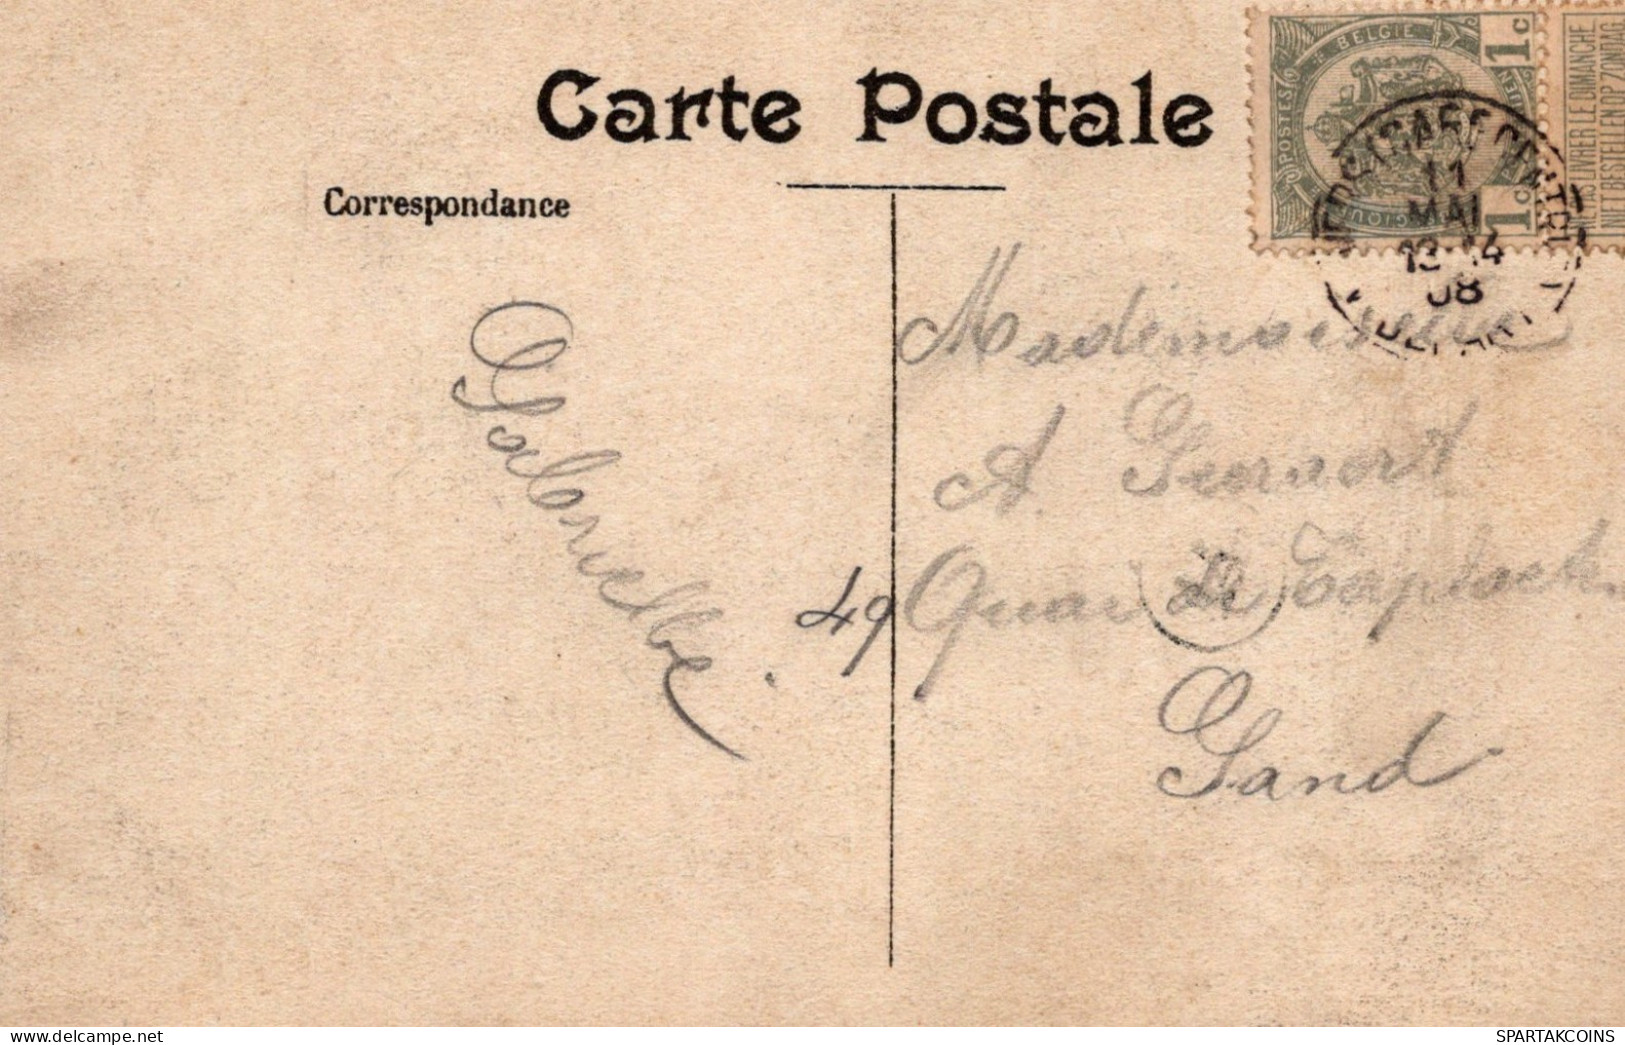 Carte Postale
Correspondance
POSTES
BELGIE
1c
1c
NE PAS LIVRER LE DIMANCHE
NIET BESTELLEN OP ZONDAG
11
MAI
08
DEPART
Mademoiselle
A.
49 Quai De
Gand
Gabrielle.
delcampe.net
SPARTAKCOINS